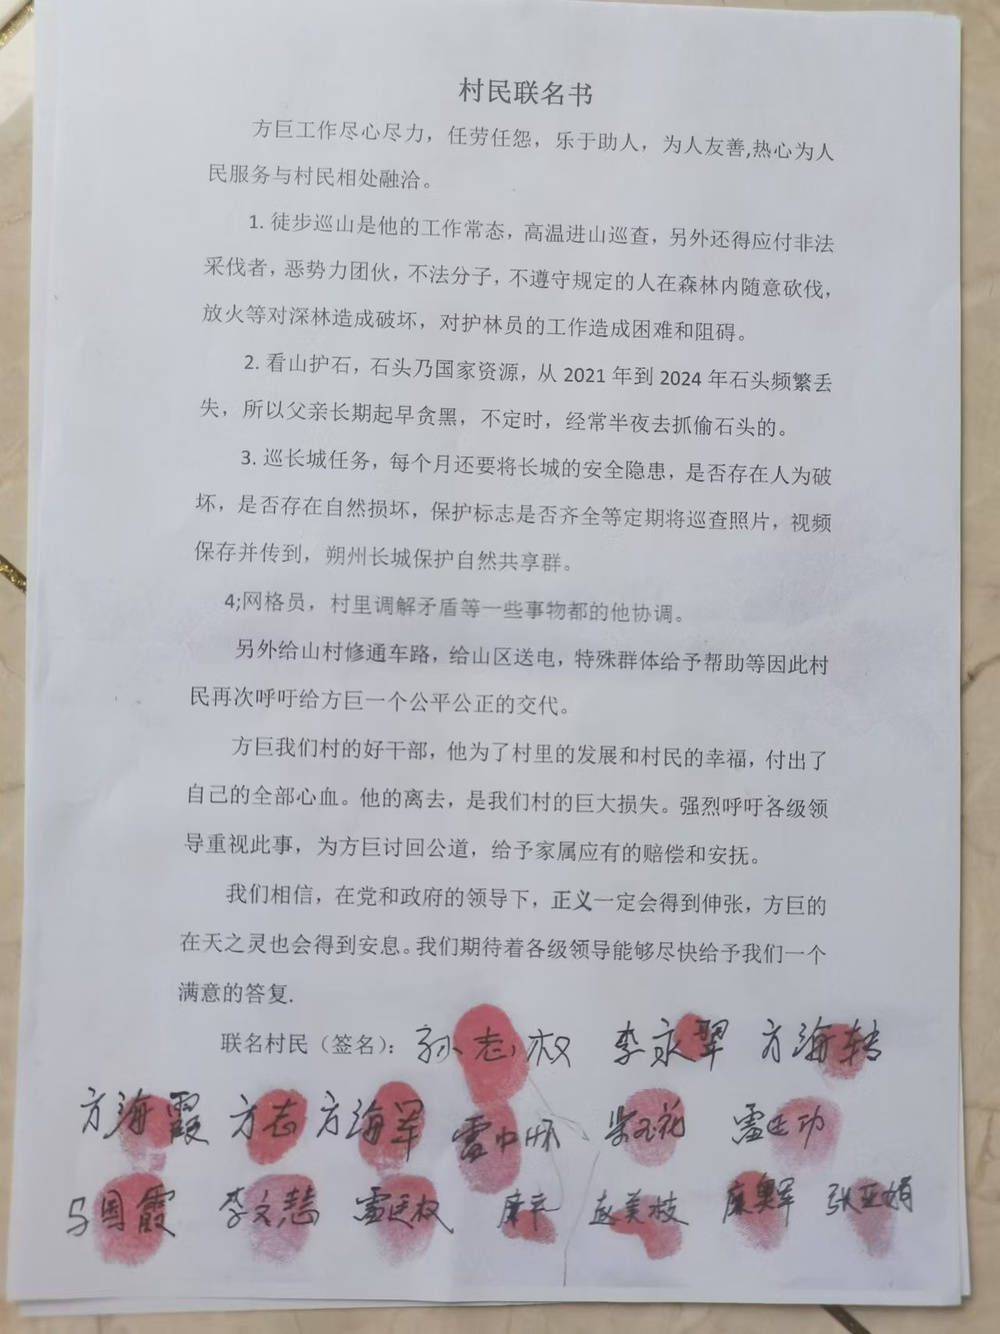 村民联名书
方巨工作尽心尽力，任劳任怨，乐于助人，为人友善,热心为人
民服务与村民相处融洽。
1. 徒步巡山是他的工作常态，高温进山巡查，另外还得应付非法
采伐者，恶势力团伙，不法分子，不遵守规定的人在森林内随意砍伐，
放火等对深林造成破坏，对护林员的工作造成困难和阻碍。
2. 看山护石，石头乃国家资源，从 2021 年到 2024 年石头频繁丢
失，所以父亲长期起早贪黑，不定时，经常半夜去抓偷石头的。
3. 巡长城任务，每个月还要将长城的安全隐患，是否存在人为破
坏，是否存在自然损坏，保护标志是否齐全等定期将巡查照片，视频
保存并传到，朔州长城保护自然共享群。
4;网格员，村里调解矛盾等一些事物都的他协调。
另外给山村修通车路，给山区送电，特殊群体给予帮助等因此村
民再次呼吁给方巨一个公平公正的交代。
方巨我们村的好干部，他为了村里的发展和村民的幸福，付出了
自己的全部心血。他的离去，是我们村的巨大损失。强烈呼吁各级领
导重视此事，为方巨讨回公道，给予家属应有的赔偿和安抚。
我们相信，在党和政府的领导下，正义一定会得到伸张，方巨的
在天之灵也会得到安息。我们期待着各级领导能够尽快给予我们一个
满意的答复.
联名村民（签名）：孙志权 李永翠 方海转
方海霞 方志 方海军 雷中怀 柴玉花 雷廷功
马国霞 李文慧 雷廷权 康平 美枝 康奥军 张亚娟